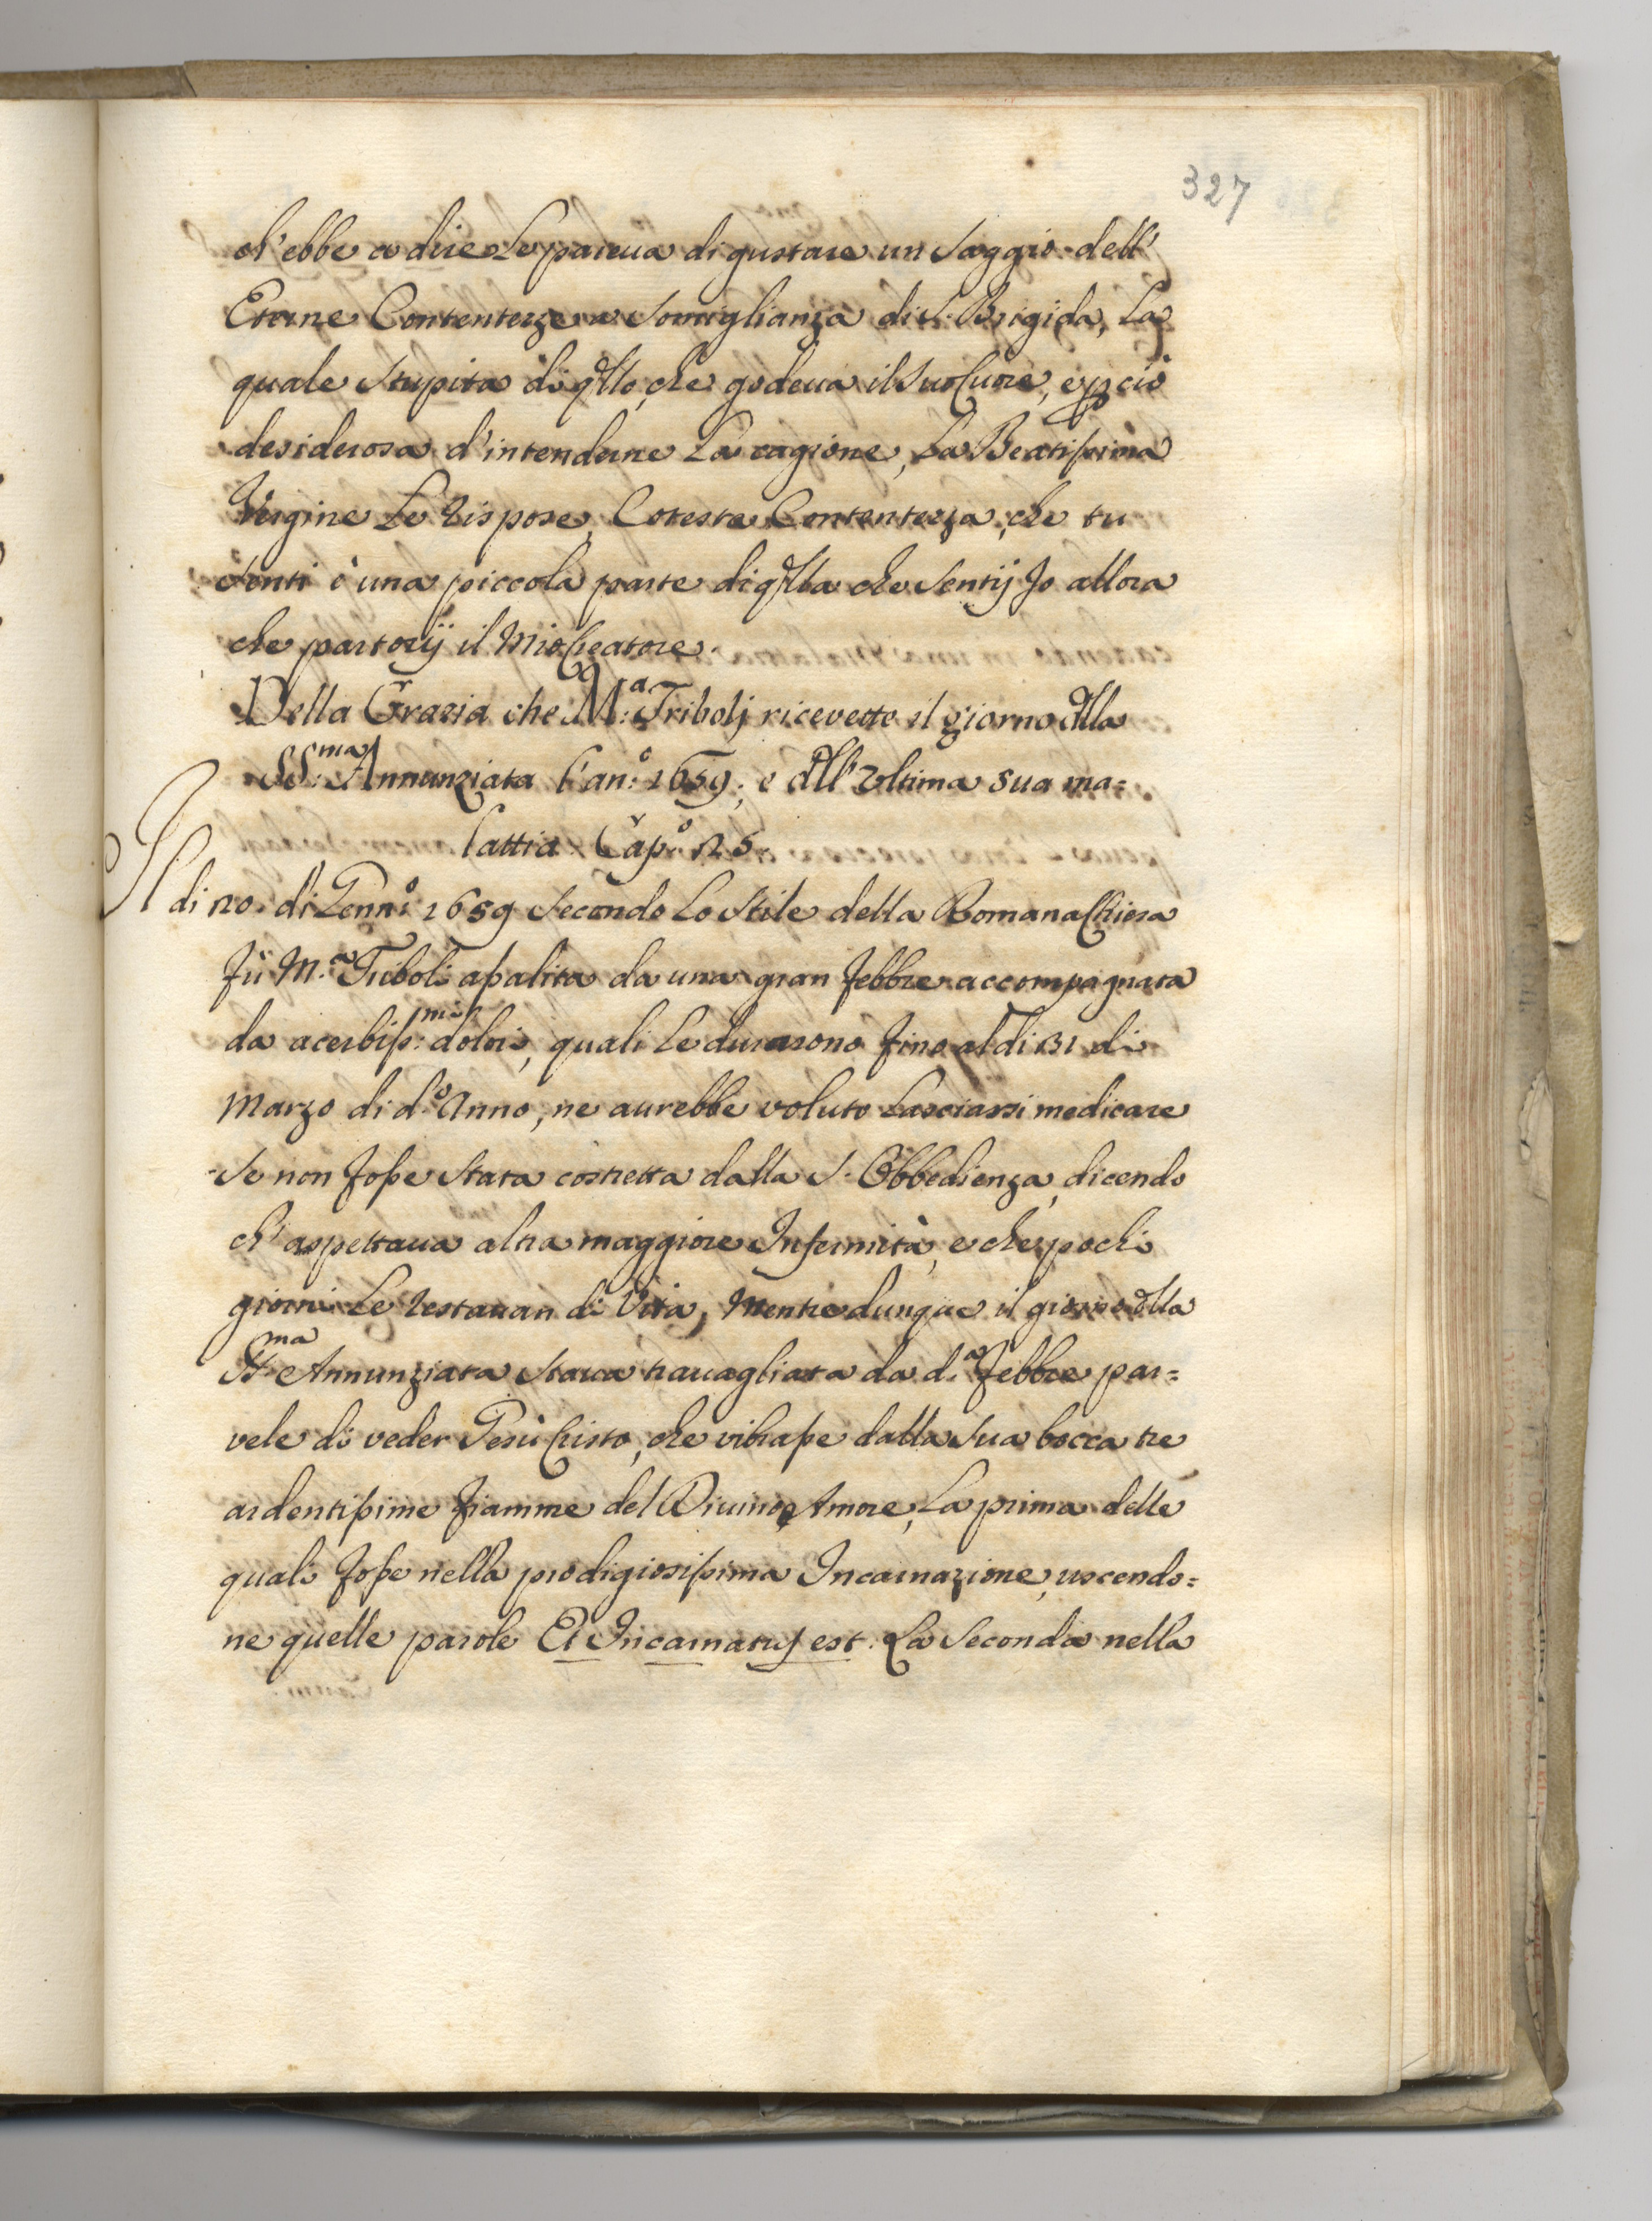 327
ch'ebbe a dire Le pareua di gustare un Saggio dell'
Eterne Contentezze a Somiglianza di S. Brigida, La
quale Stupita di qllo, che godeua il Suo Cuore, e p ciò
desiderosa d'intenderne La cagione, La Beatissima
Vergine Le rispose, Cotesta Contentezza, che tu
Senti è una piccola parte di qlla che Sentij Io allora
che partorij il Mio Creatore.
Della Grazia che M.a Tribolj ricevette il giorno dlla
SS.ma Annunziata l'an.o 1659; e dll'Vltima sua ma=
lattia. Cap.o 25.
Il di 20. di Genn.o 1659 Secondo Lo Stile della Romana Chiesa
fù M.a Triboli assalita da una gran febbre accompagnata
da acerbiss.mi dolori, quali Le durarono fino al di 31 di
Marzo di d.o Anno, ne aurebbe voluto Lasciarsi medicare
Se non fosse Stata costretta dalla S. Obbedienza, dicendo
ch'aspettaua altra maggiore Infermità, e che pochi
giorni Le restauan di Vita; Mentre dunque il giorno dlla
SS.ma Annunziata Staua trauagliata da d.a febbre par=
vele di veder Giesù Cristo, che vibrasse dalla Sua bocca tre
ardentissime fiamme del Diuino Amore, La prima delle
quali fosse nella prodigiosissima Incarnazione, uscendo=
ne quelle parole Et Incarnatus est. La Seconda nella